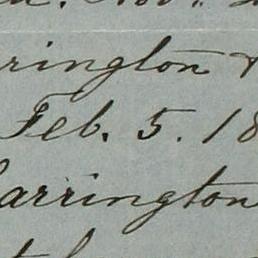 rrington &
Feb. 5. 18
Carrington